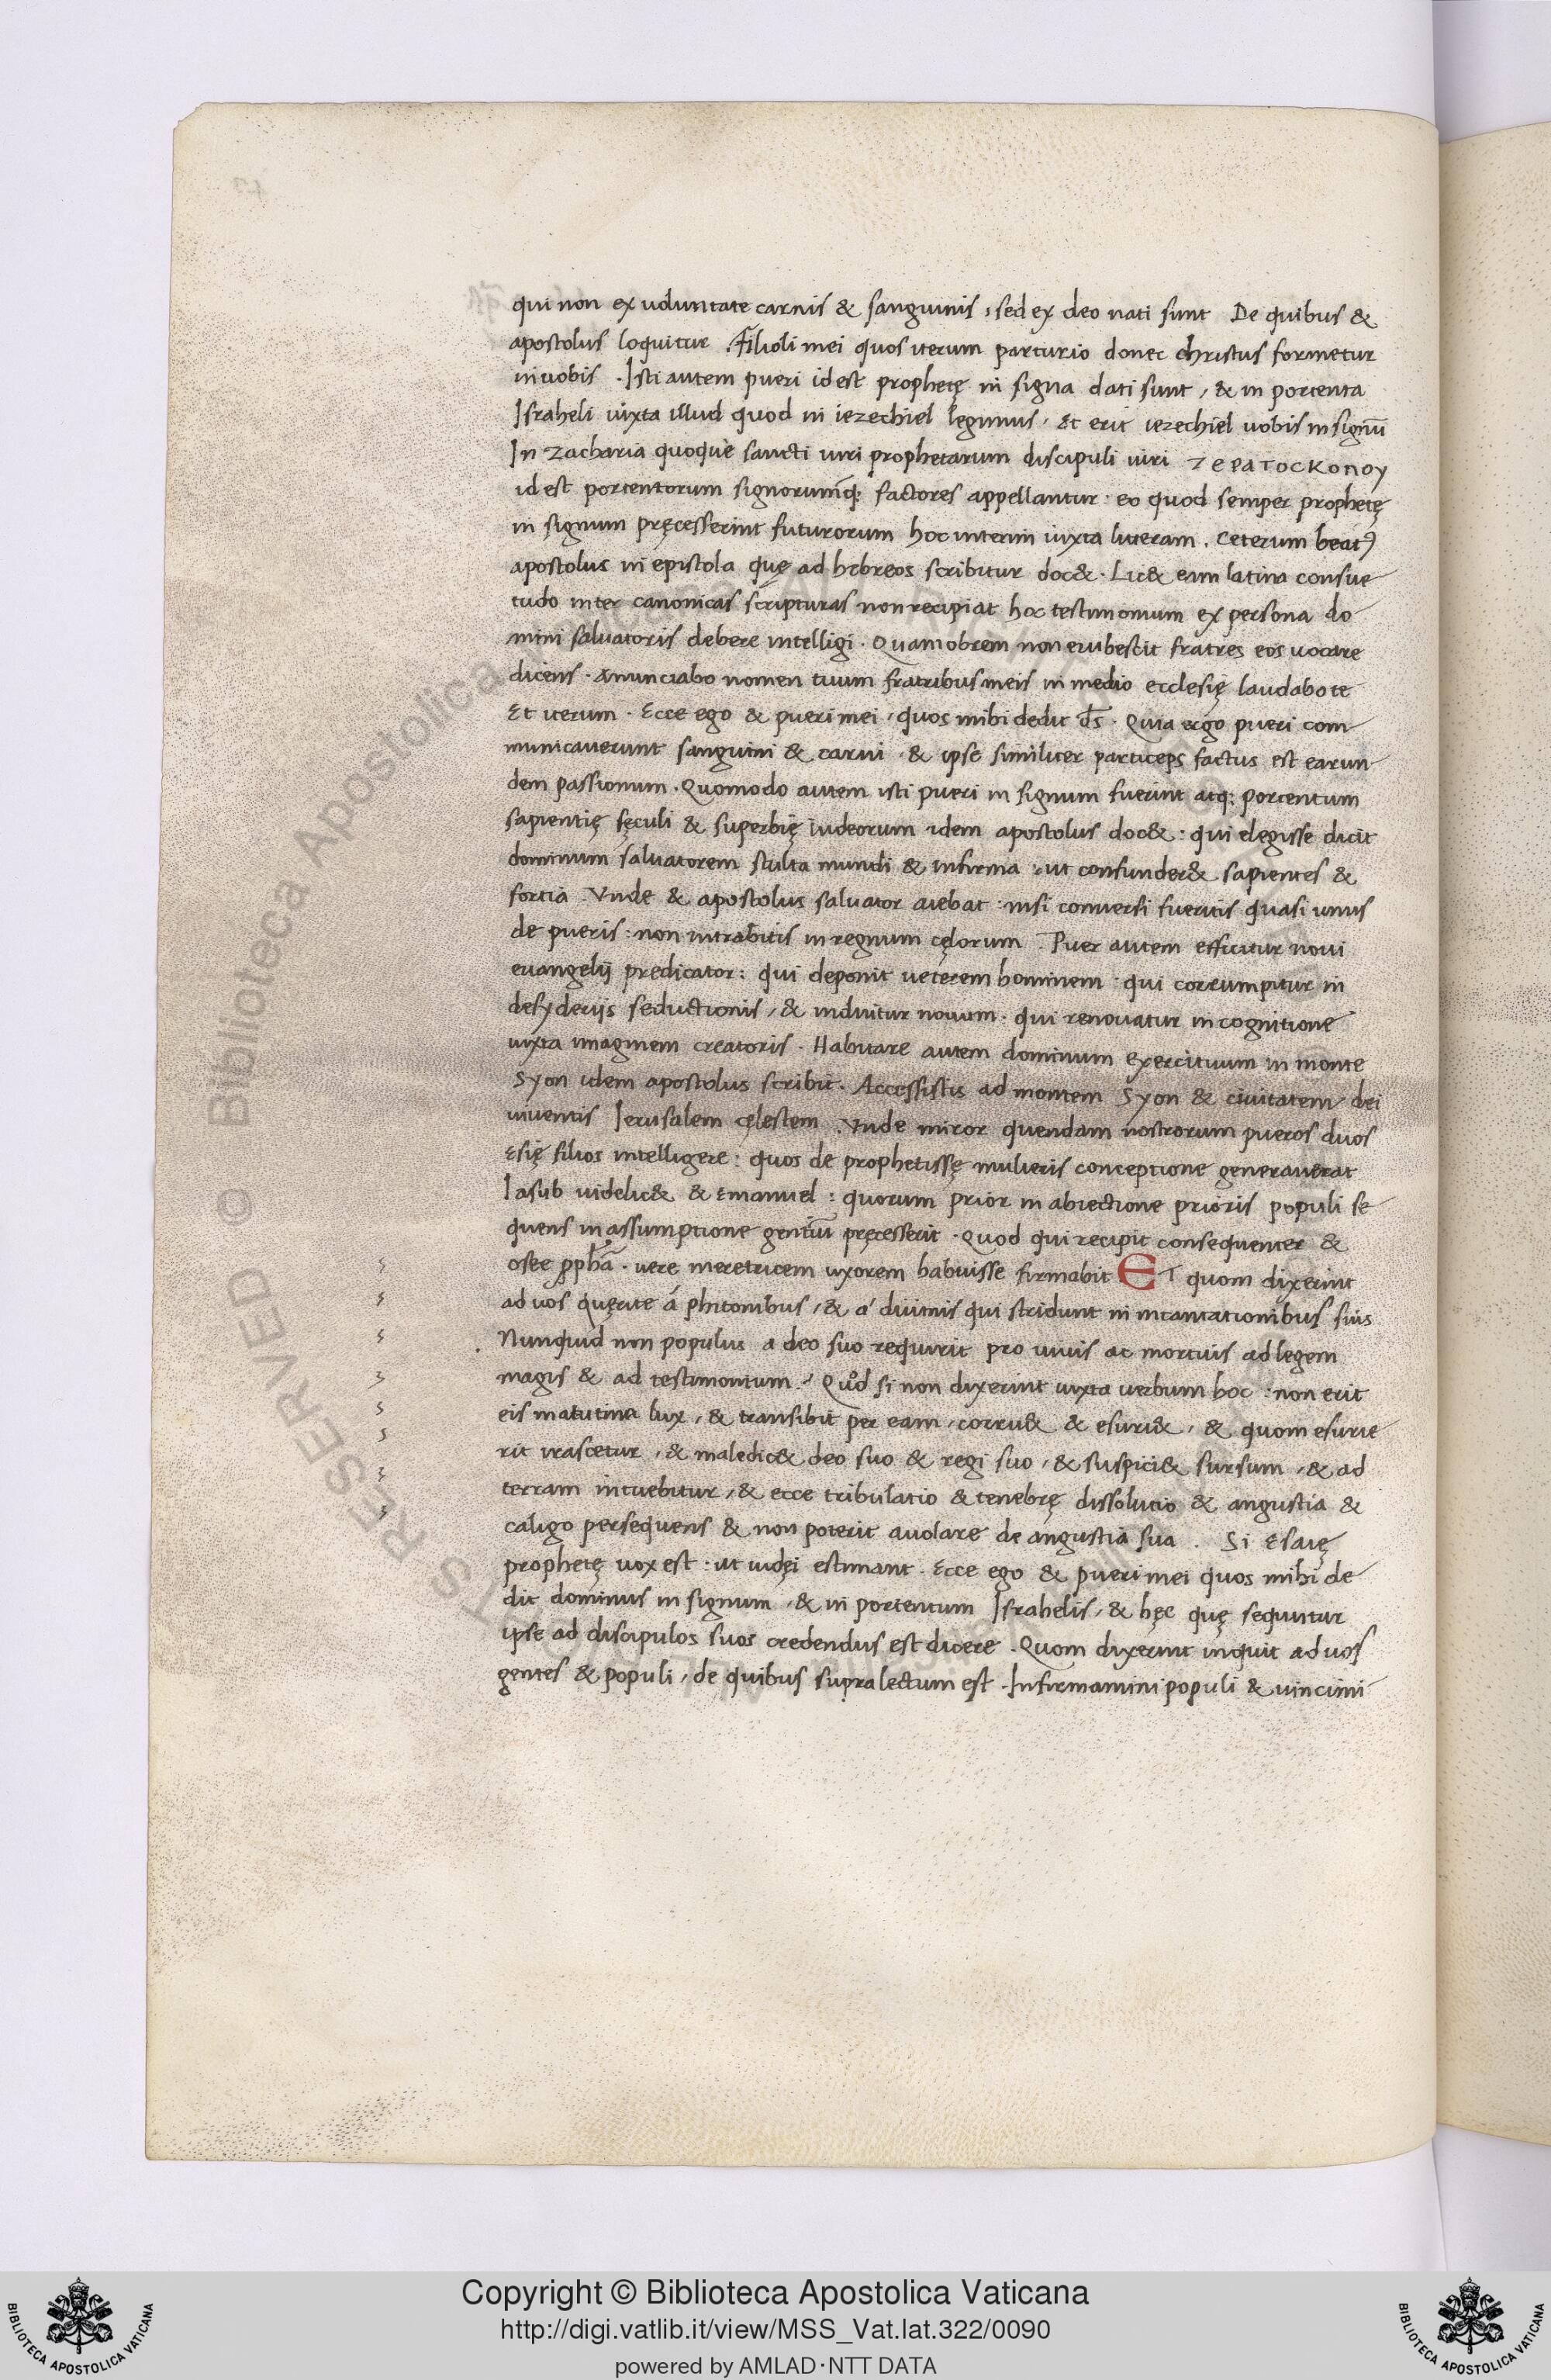 qui non ex voluntate carnis & sanguinis, sed ex deo nati sunt De quibus &
apostolus loquitur . Filioli mei quos iterum parturio donec christus formetur
in vobis . Isti autem pueri id est prophetę in signa dati sunt, & in portenta
Israheli iuxta illud quod in iezechiel legimus, Et erit iezechiel vobis in signū
In Zacharia quoque sancti viri prophetarum discipuli viri
id est portentorum signorumq; factores appellantur : eo quod semper prophetę
in signum pręcesserint futurorum hoc interim iuxta litteram . Ceterum beatꝰ
apostolus in epistola quę ad hebreos scribitur doc& . Lic& eam latina consue-
tudo inter canonicas scripturas non recipiat hoc testimonium ex persona do-
mini salvatoris debere intelligi . Quamobrem non erubescit fratres eos vocare
dicens . Annunciabo nomen tuum fratribus meis in medio ecclesię laudabo te
Et iterum . Ecce ego & pueri mei, quos mihi dedit ds̄ . Quia ergo pueri com-
municaverunt sanguini & carni . & ipse similiter particeps factus est earun-
dem passionum . Quomodo autem isti pueri in signum fuerint atq; portentum
sapientię sęculi & superbię iudeorum idem apostolus doc& : qui elegisse dicit
dominum salvatorem stulta mundi & infirma : ut confunder& sapientes &
fortia . Unde & apostolus salvator aiebat : nisi conversi fueritis quasi unus
de pueris : non intrabitis in regnum cęlorum . Puer autem efficitur novi
evangelij predicator : qui deponit veterem hominem : qui corrumpitur in
desyderijs seductionis, & induitur novum . qui renovatur in cognitione
iuxta imaginem creatoris . Habitare autem dominum exercituum in monte
Syon idem apostolus scribit . Accessistis ad montem Syon & civitatem dei
viventis Ierusalem cęlestem . Unde miror quendam nostrorum pueros duos
Esię filios intelligere : quos de prophetissę mulieris conceptione generaverat
Iasub videlic& & Emanuel : quorum prior in abiectione prioris populi se-
quens in assumptione gentiū pręcesserit . Quod qui recipit consequenter &
osee ꝓphā . vere meretricem uxorem habuisse firmabit ET quom dixerint
ad vos quęrite á phitonibus, & á divinis qui stridunt in incantationibus suis
Nunquid non populus a deo suo requirit pro vivis ac mortuis ad legem
magis & ad testimonium . Quod si non dixerint iuxta verbum hoc : non erit
eis matutina lux, & transibit per eam, corru& & esuri&, & quom esurie-
rit irascetur, & maledic& deo suo & regi suo, & suspici& sursum, & ad
terram intuebitur, & ecce tribulatio & tenebrę dissolutio & angustia &
caligo persequens & non poterit avolare de angustia sua . Si Esaię
prophetę vox est : ut iudęi estimant . Ecce ego & pueri mei quos mihi de-
dit dominus in signum, & in portentum Israhelis, & hęc quę sequitur
ipse ad discipulos suos credendus est dicere . Quom dixerint inquit ad vos
gentes & populi, de quibus supra lectum est . Infirmamini populi & vincimi-
© Biblioteca Apostolica
RESERVED
Copyright © Biblioteca Apostolica Vaticana
http://digi.vatlib.it/view/MSS_Vat.lat.322/0090
powered by AMLAD·NTT DATA
BIBLIOTECA APOSTOLICA VATICANA
BIBLIOTECA APOSTOLICA VATICANA